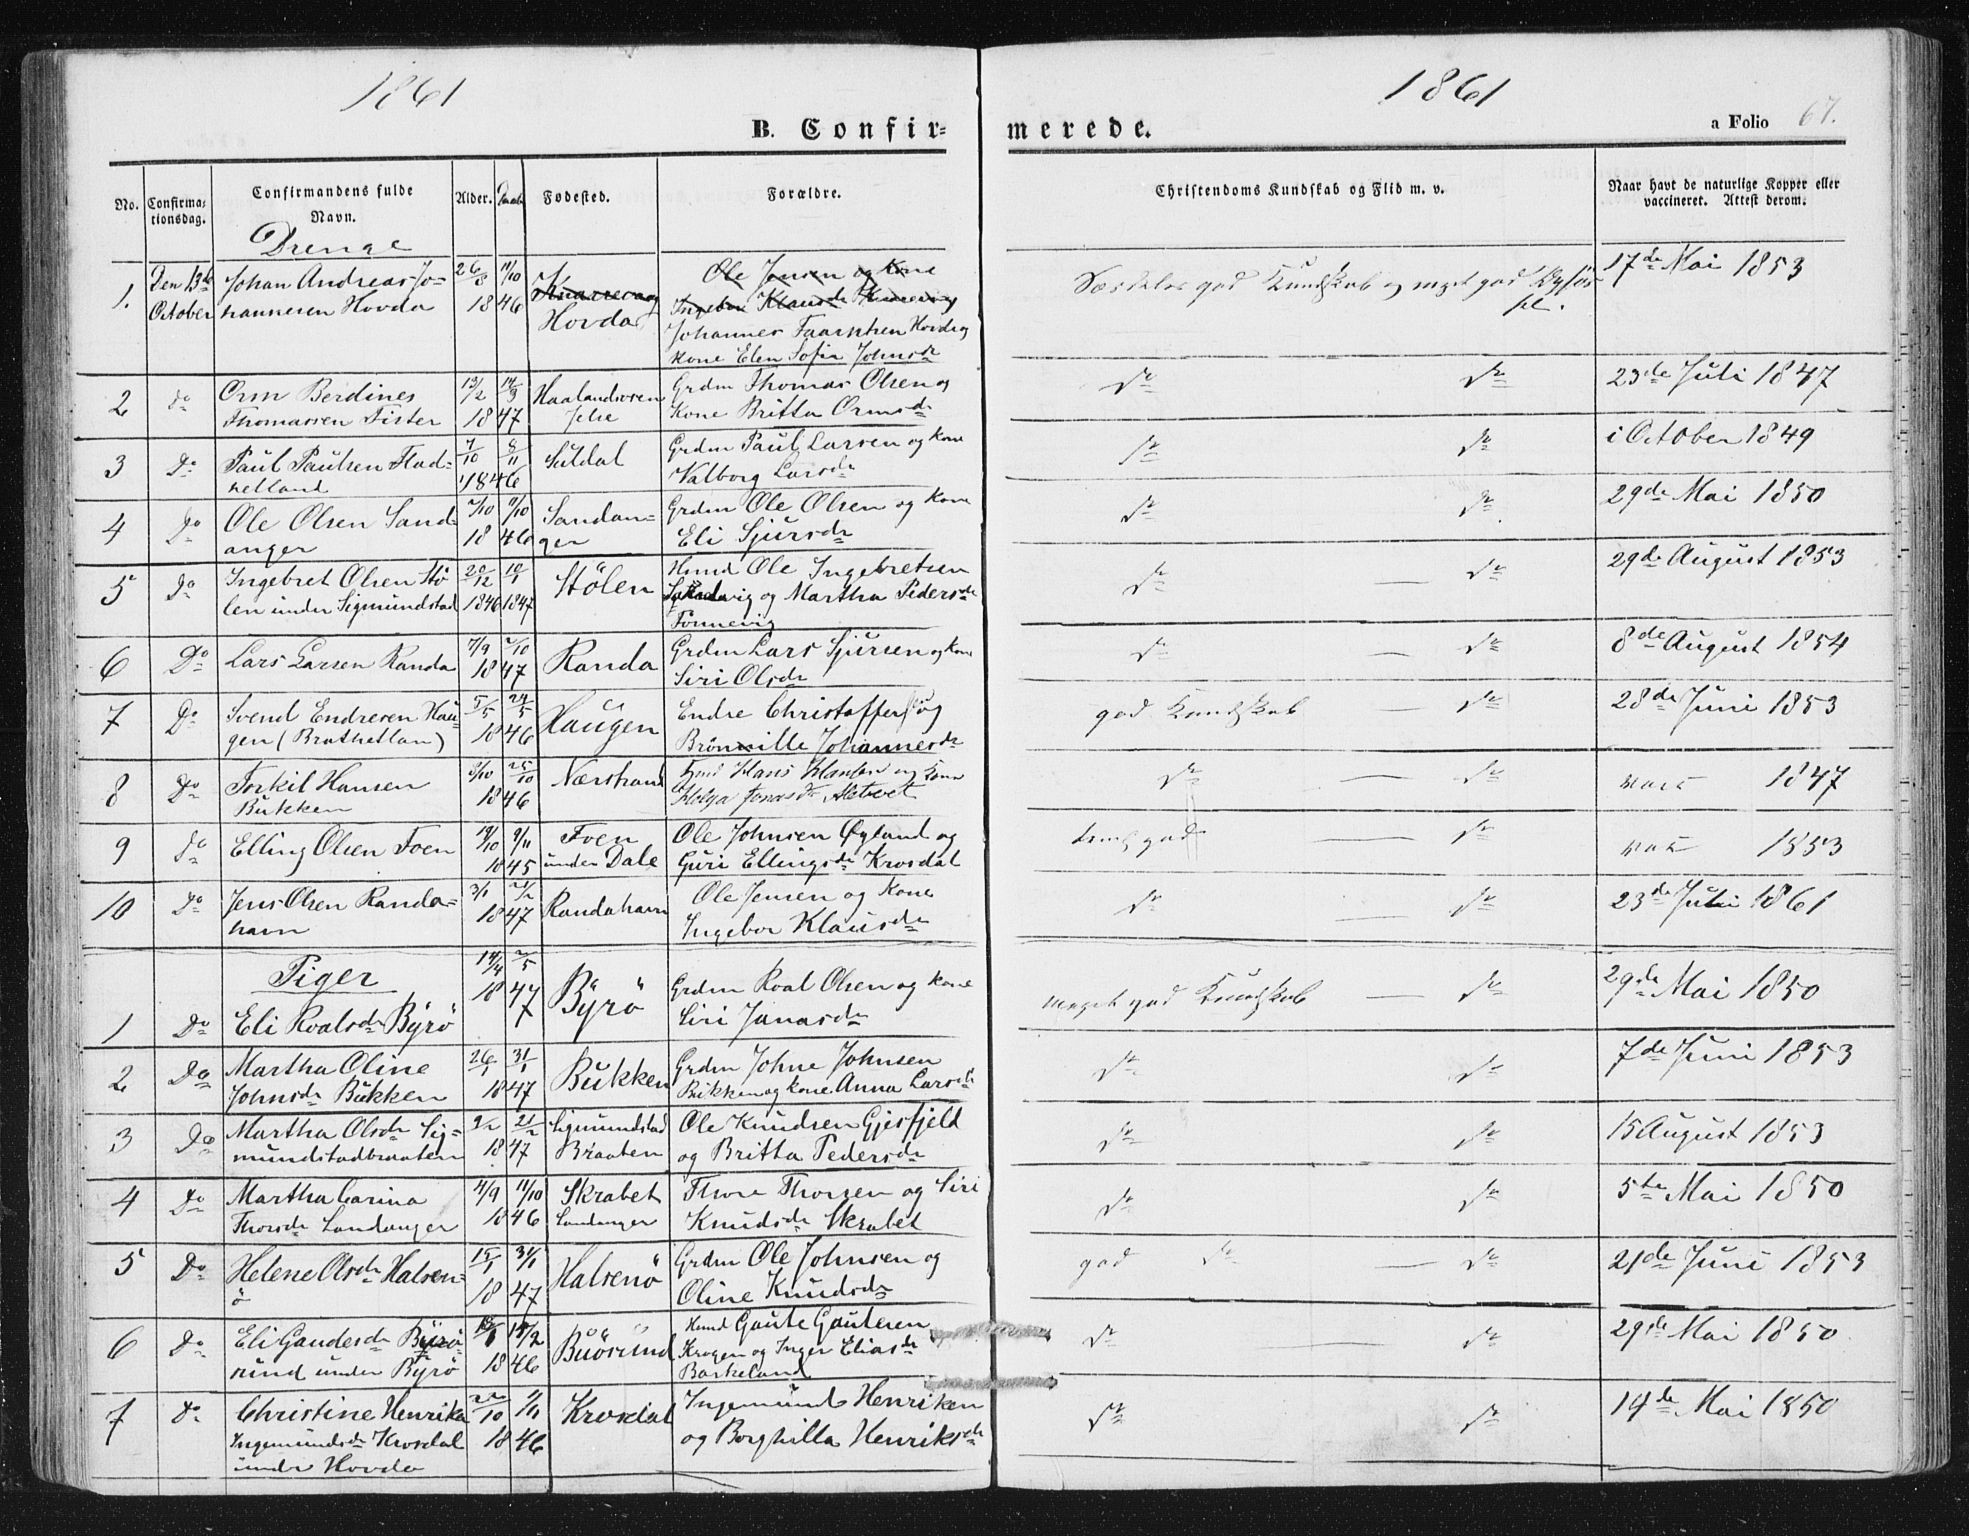 1861
1861
B. Confir=
merede.
a Folio 67.
No.
Confirma-
tionsdag.
Confirmandens fulde
Navn.
Alder.
Daab
Fødested.
Forældre.
Christendoms Kundskab og Flid m. v.
Naar havt de naturlige Kopper eller
vaccineret. Attest derom.
Drenge
1. Den 13de Johan Andreas Jo= 26/8 11/10 Ole Jensen og Kone 17de Mai 1853
October hannesen Hovda 1846 Hovda Ingebor Klausdr
god Kundskab og meget god
Johannes Hovda og
Kone Elen Sofia Johnsdr
2 do Orm Berdines 13/2 14/3 Grdm Thomas Olsen og do do 23de Juli 1847
Thomassen Fister 1847 Jelse Kone Britta Ormsdr
3 Do Paul Paulsen Flad= 7/10 8/11 Suldal Grdm Paul Larsen og Kone do do i October 1849
helland 1846 Valborg Larsdr
4 Do Ole Olsen Sand= Sandan= Grdm Ole Olsen og Kone do do 29de Mai 1850
anger 1846 ger Eli Sjursdr
5 Do Ingebret Olsen Stö 20/12 10/1 Stölen Huusmd Ole Ingebretsen do — do 29de August 1853
len under Sigmundstad 1846 1847 og Martha Pedersdr
Fonnevig
6 Do Lars Larsen Randa 7/9 Randa Grdm Lars Sjursen og Kone do — do 8de August 1854
1847 Siri Olsdr
7 Do Svend Endresen Hau= 5/5 24/5 Haugen Endre Christoffersen og god Kundskab — do 28de Juni 1853
gen (Brathetlan) 1846 Johannesdr
8 Do Torkil Hansen 25/10 Nærstrand Hans Hansen og Kone do — do 1847
Bukken 1846 Helga Jonasdr
9 do Elling Olsen Foen 19/10 9/11 Foen Ole Johnsen Øyland og god — do 1853
1845 under Dale Guri Ellingsdr Krosdal
10 Do Jens Olsen Randa= 3/1 Randahavn Ole Jensen og Kone do — do 23de Juli 1861
havn 1847 Ingebor Klausdr
Piger
1 Do Eli Roalsdr Byrö 14/4 2/5 1847 Byrö Grdm Roal Olsen og Kone meget god Kundskab — do 29de Mai 1850
Siri Jonasdr
2 Do Martha Oline 26/1 31/1 Bukken Grdm Johne Johnsen do do 7de Juni 1853
Johnsdr Bukken 1847 Bukken og Kone Anna Larsdr
3 Do Martha Olsdr Sig= 21/2 Sigmundstad Ole Knudsen Gjesfjeld do do 15 August 1853
mundstadbraaten 1847 Braaten og Britta Pedersdr
4 Do Martha Carina 4/9 11/10 Skrabet Thore Thorsen og Siri do do 5te Mai 1850
Thorsdr Sandanger 1846 Sandanger Knudsdr Skrabet
5 Do Helene Olsdr Halsen= 15/1 31/1 Halsenö Grdm Ole Johnsen og god do — do 21de Juni 1853
ö 1847 Oline Knudsdr
6 Do Eli Gaudesdr Byrö= Huusmd Gaute Gautesen do — do 29de Mai 1850
sund under Byrö 1846 Krogen og Inger Eliasdr
Barkeland
7 Do Christine Henrika Krosdal Ingemund Henriksen do do 14de Mai 1850
Ingemundsdr Krosdal 1846 og Borghilla Henriksdr
under Hovda